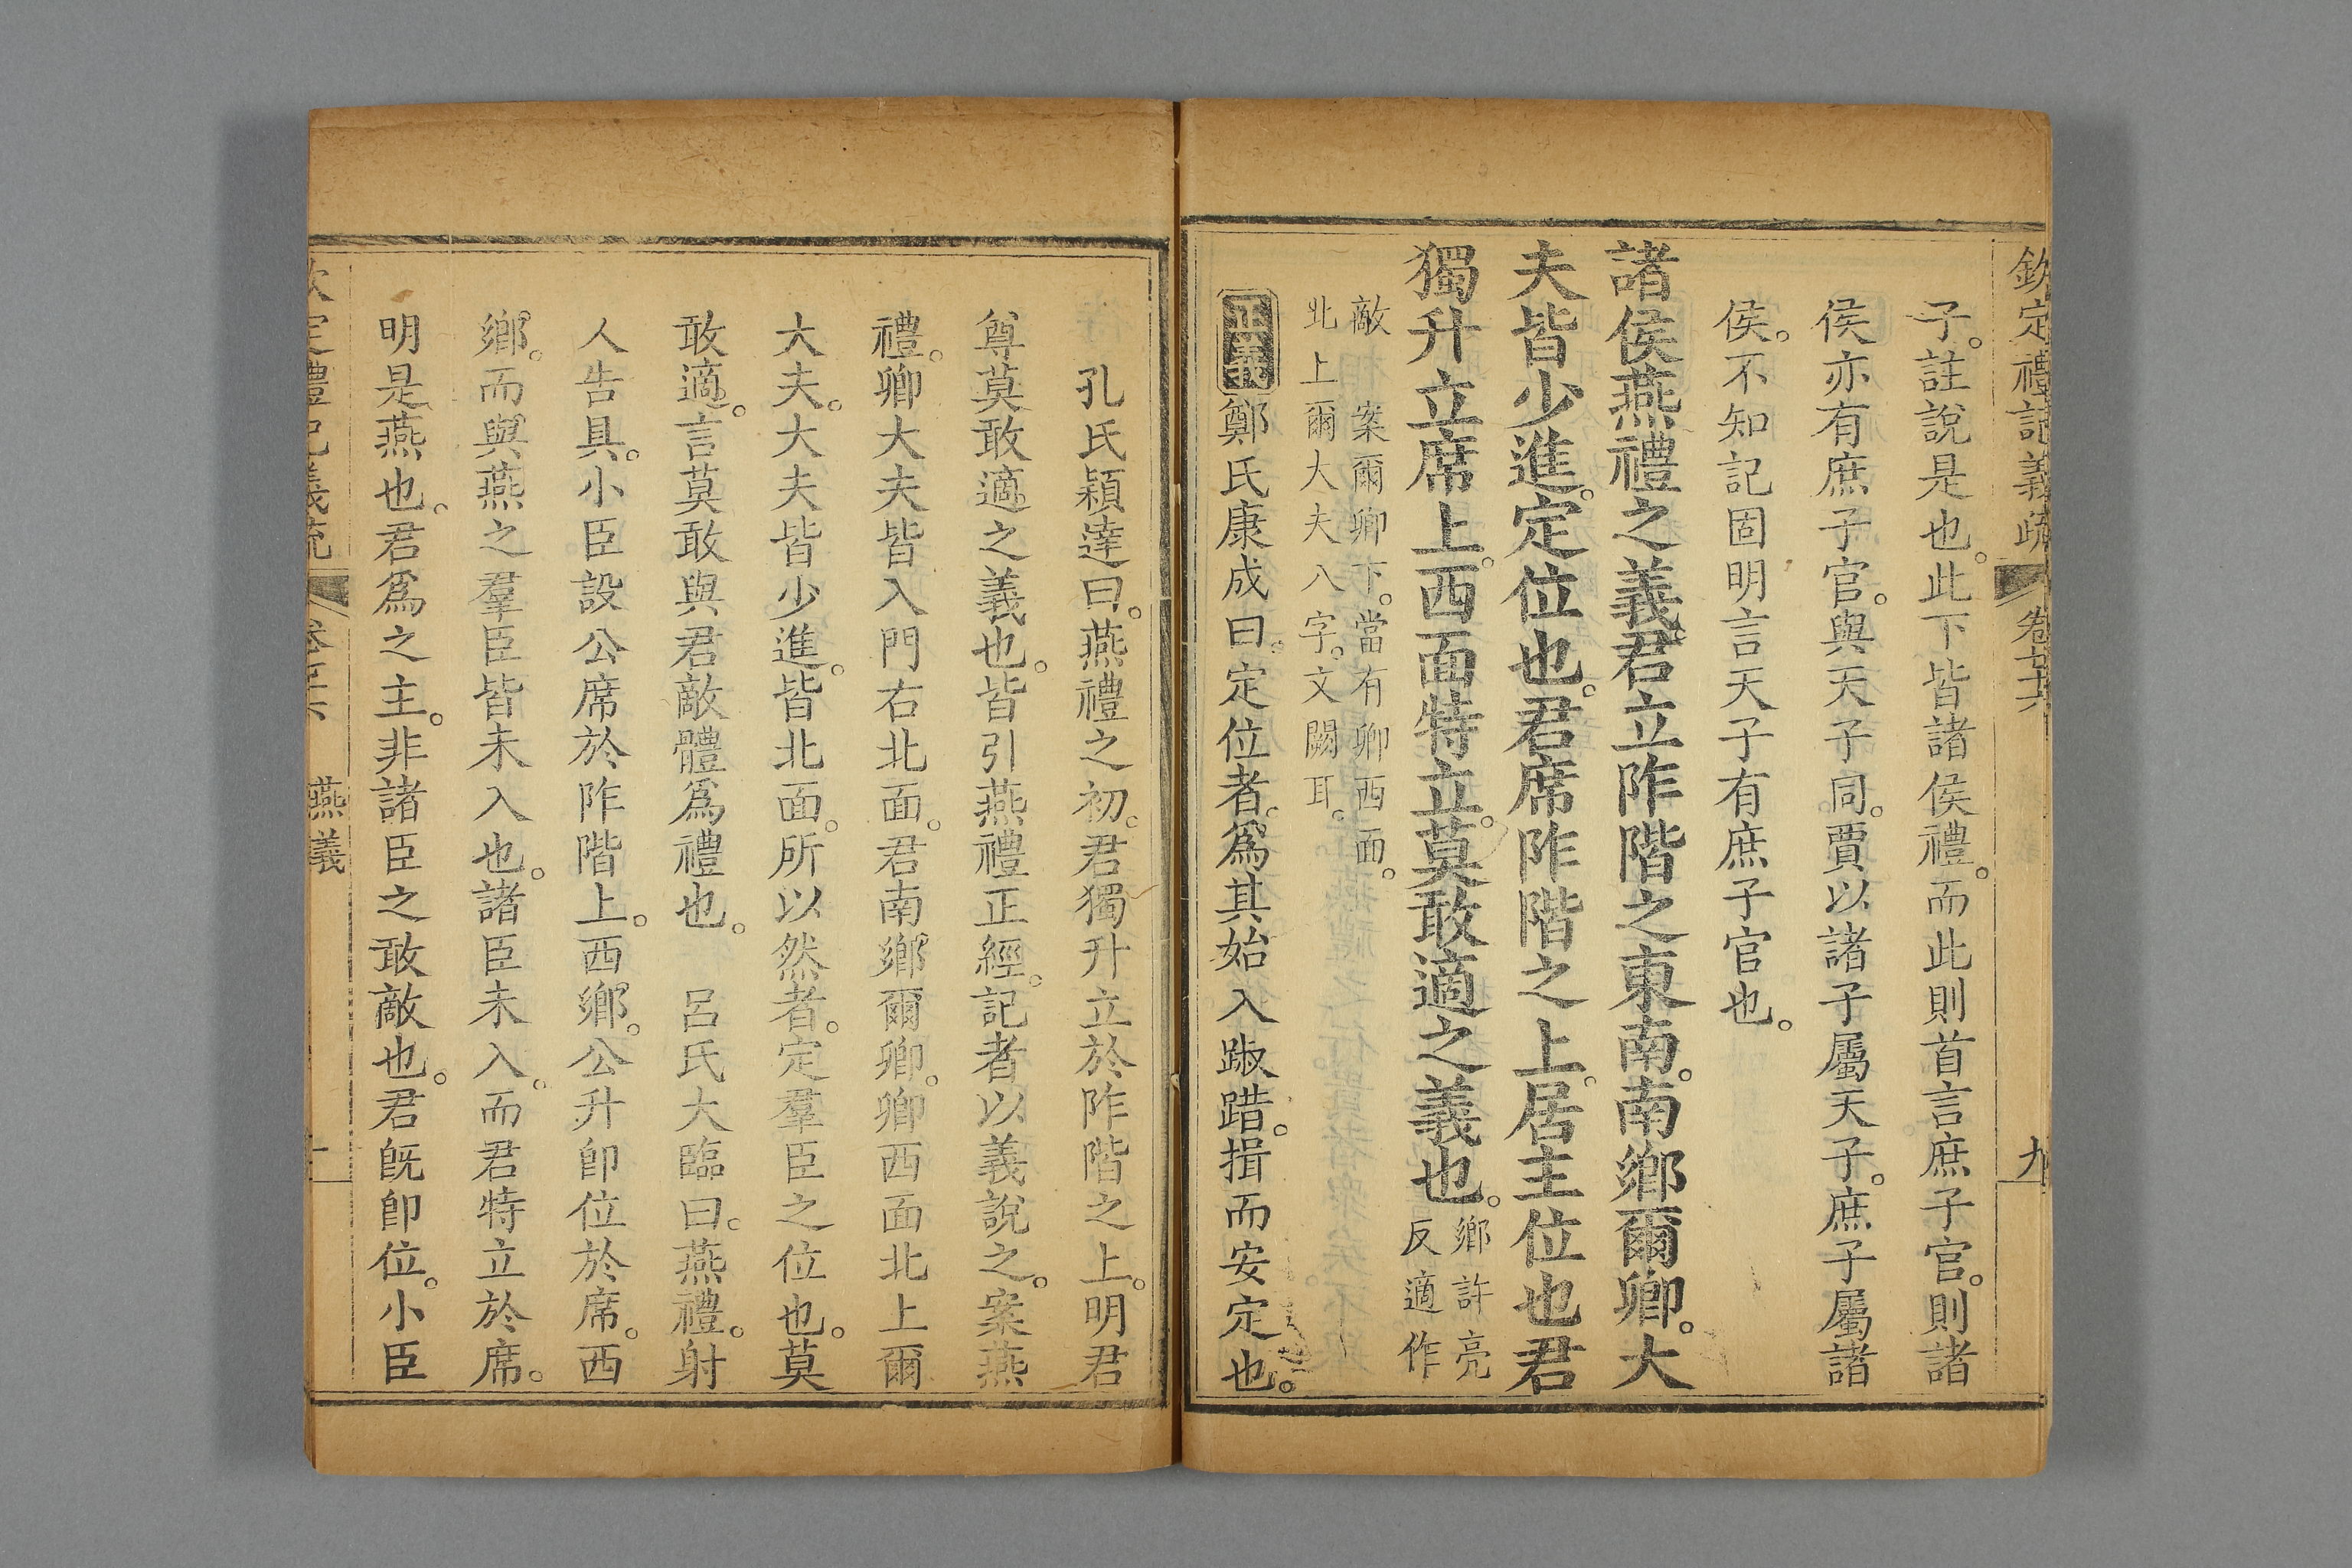 欽定禮記義疏 卷 九
子。註說是也。此下皆諸侯禮。而此則首言庶子官。則諸
侯亦有庶子官。與天子同。賈以諸子屬天子。庶子屬諸
侯。不知記固明言天子有庶子官也。
諸侯燕禮之義。君立阼階之東南。南鄉爾卿。大
夫皆少進。定位也。君席阼階之上。居主位也。君
獨升立席上。西面特立。莫敢適之義也。鄉許亮
反適作
敵 案爾卿下。當有卿西面。
北上爾大夫八字。文闕耳。
正義 鄭氏康成曰。定位者。爲其始入踧踖。揖而安定也。
孔氏穎達曰。燕禮之初。君獨升立於阼階之上。明君
尊莫敢適之義也。皆引燕禮正經。記者以義說之。案燕
禮。卿大夫皆入門右北面。君南鄉爾卿。卿西面北上爾
大夫。大夫皆少進。皆北面。所以然者。定羣臣之位也。莫
敢適。言莫敢與君敵體爲禮也。 呂氏大臨曰。燕禮。射
人告具。小臣設公席於阼階上。西鄉。公升卽位於席。西
鄉。而與燕之羣臣皆未入也。諸臣未入。而君特立於席。
明是燕也。君爲之主。非諸臣之敢敵也。君旣卽位。小臣
欽定禮記義疏 卷 燕義